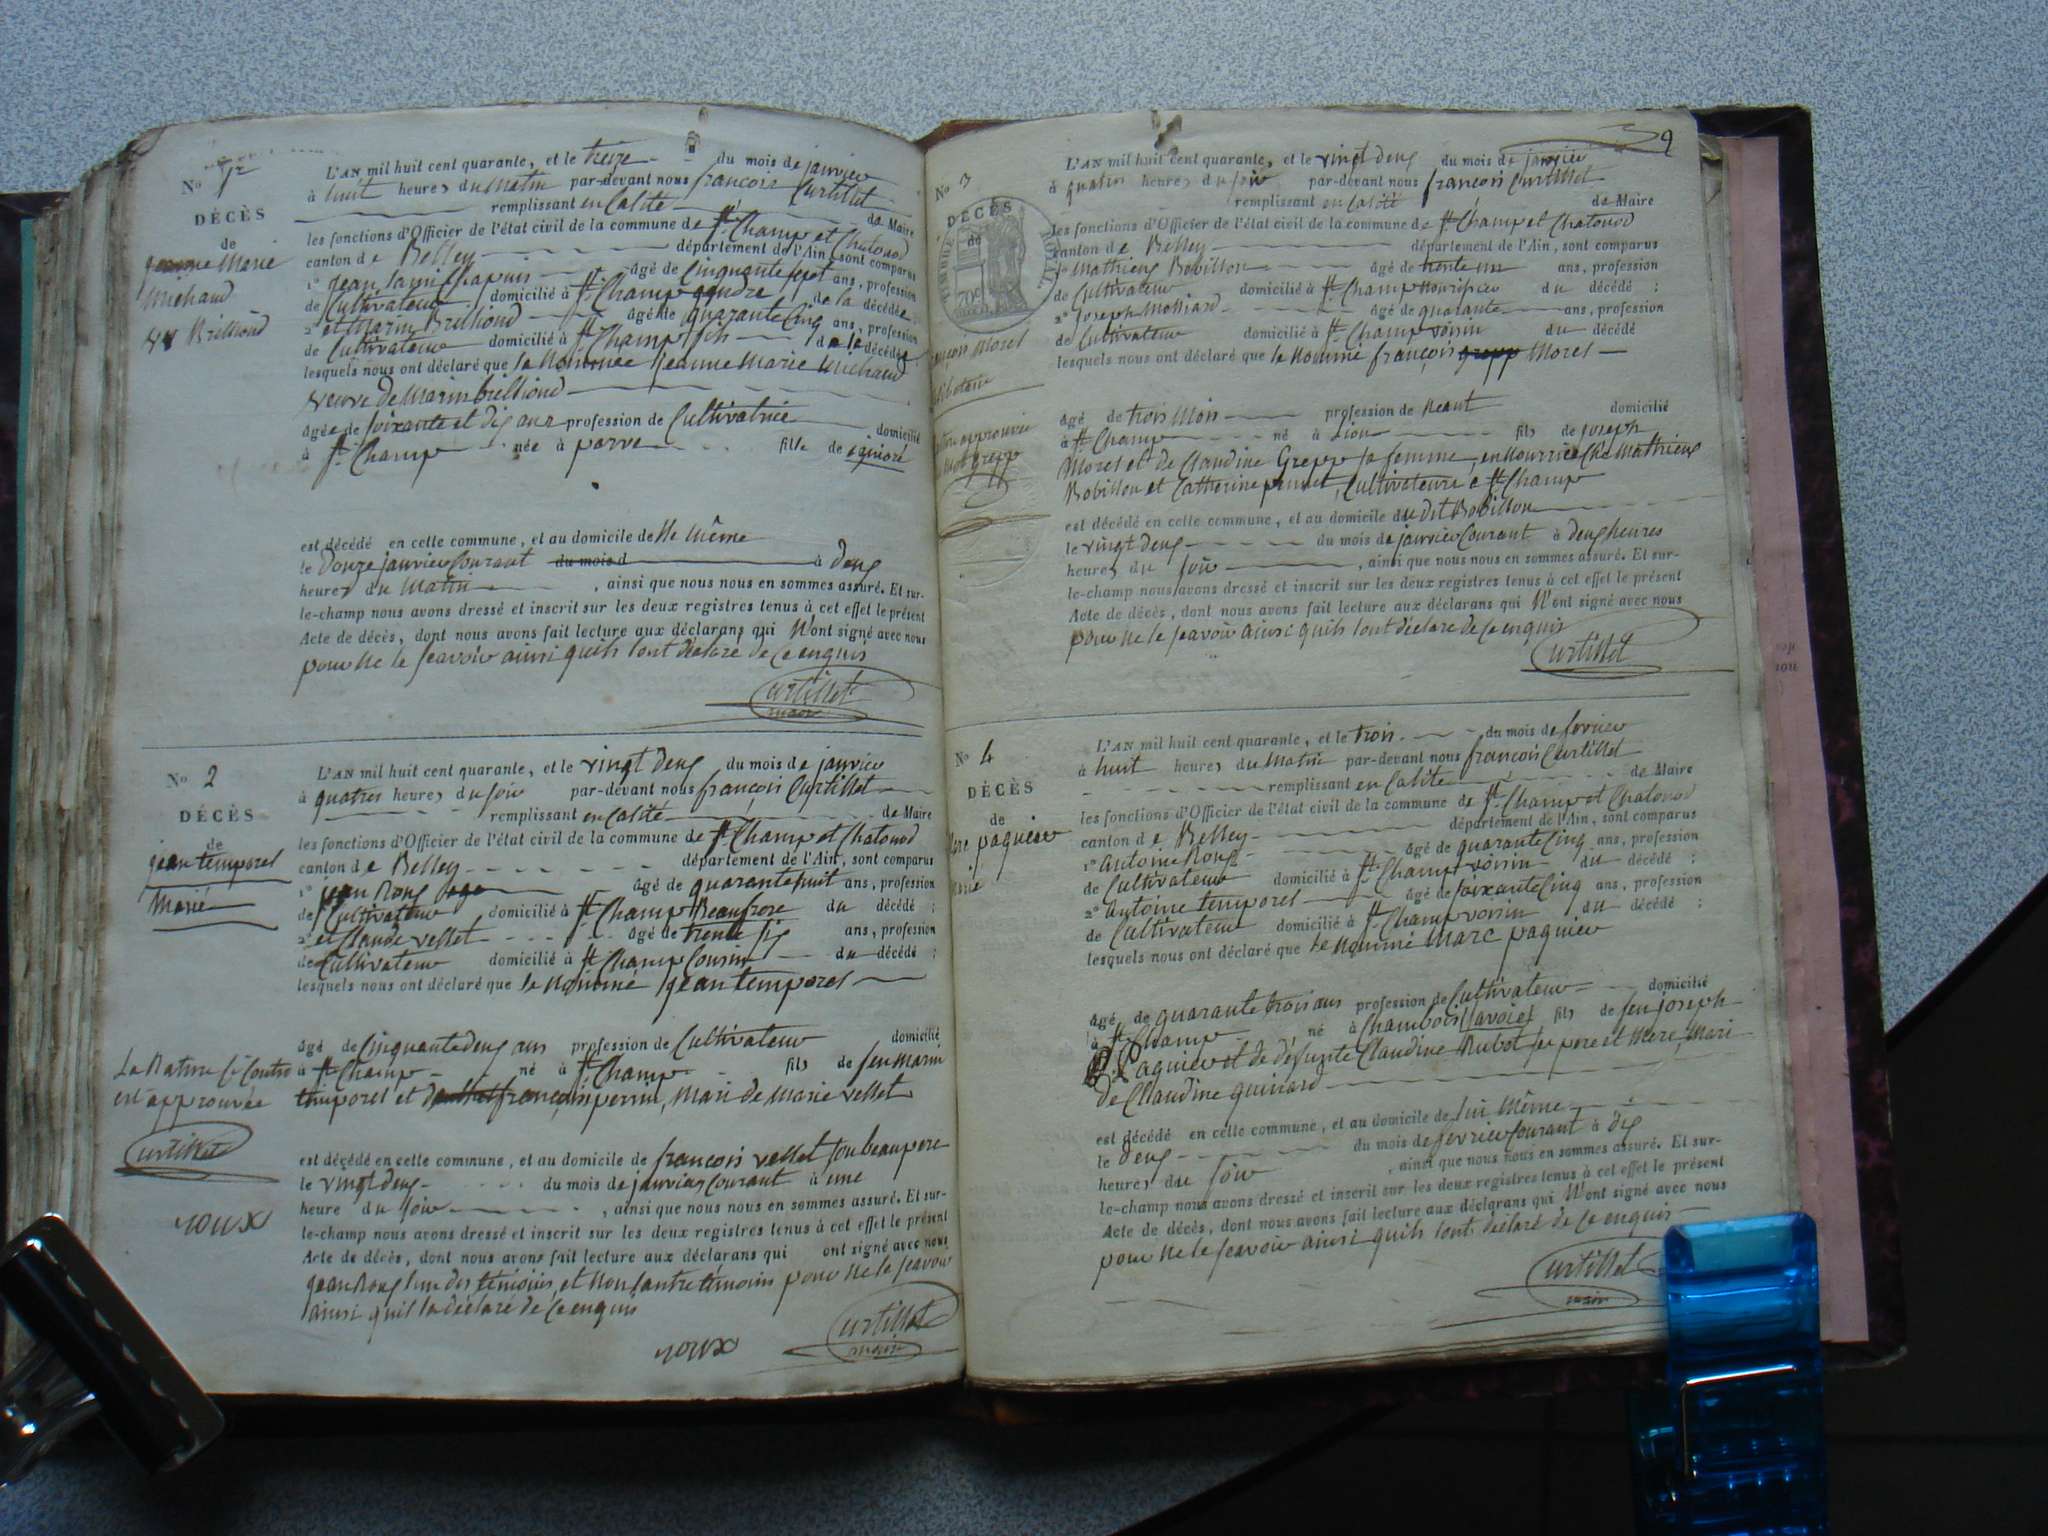 No 1er
DÉCÈS
de
jeanne Marie
Michaud
vve Brilliond
L'AN mil huit cent quarante, et le treize du mois de janvier
à huit heures du Matin par-devant nous françois Curtillet
remplissant en Calité de Maire
les fonctions d'Officier de l'état civil de la commune de St Champ et Chatonod
canton de Belley département de l'Ain, sont comparus
1º jean Chapuis âgé de Cinquante sept ans, profession
de Cultivateur domicilié à St Champ gendre de la décédée
2º et Marin Brilliond âgé de quarante Cinq ans, profession
de Cultivateur domicilié à St Champ fils de la décédée
lesquels nous ont déclaré que la Nommée Jeanne Marie Michaud
veuve de Marin brilliond
âgée de soixante et dix ans profession de Cultivatrice domicilié
à St Champ née à parve fille de ignoré
est décédé en cette commune, et au domicile de elle même
le Douze janvier Courant du mois d à deux
heures du Matin , ainsi que nous nous en sommes assuré. Et sur-
le-champ nous avons dressé et inscrit sur les deux registres tenus à cet effet le présent
Acte de décès, dont nous avons fait lecture aux déclarans qui N'ont signé avec nous
pour ne le scavoir ainsi quils l'ont déclaré de Ce enquis
Curtillet
maire
No 2
DÉCÈS
de
jean temporel
Marié
La Rature Ci Contre
est approuvée
Curtillet
roux
L'AN mil huit cent quarante, et le vingt deux du mois de janvier
à quatres heures du soir par-devant nous françois Curtillet
remplissant en Calité de Maire
les fonctions d'Officier de l'état civil de la commune de St Champ et Chatonod
canton de Belley département de l'Ain, sont comparus
1º jean Roux âgé de quarante huit ans, profession
de Cultivateur domicilié à St Champ Beaufrere du décédé ;
2º et Claude vellet âgé de trente six ans, profession
de Cultivateur domicilié à St Champ Cousin du décédé ;
lesquels nous ont déclaré que le Nommé jean temporel
âgé de Cinquante deux ans profession de Cultivateur domicilié
à St Champ né à St Champ fils de feu Marin
temporel et de françoise perrin, Mari de Marie vellet
est décédé en cette commune, et au domicile de françois vellet son beaupere
le vingt deux du mois de janvier Courant à une
heure du soir , ainsi que nous nous en sommes assuré. Et sur-
le-champ nous avons dressé et inscrit sur les deux registres tenus à cet effet le présent
Acte de décès, dont nous avons fait lecture aux déclarans qui ont signé avec nous
jean Roux l'un des témoins, et non l'autre témoins pour ne le scavoir
ainsi quil la déclaré de Ce enquis
roux
Curtillet
maire
39
No 3
DÉCÈS
de
TIMBRE ROYAL
70c
françois Morel
Rature approuvée
mot grepp
L'AN mil huit cent quarante, et le vingt deux du mois de janvier
à quatre heures du soir par-devant nous françois Curtillet
remplissant en Calité de Maire
les fonctions d'Officier de l'état civil de la commune de St Champ et Chatonod
canton de Belley département de l'Ain, sont comparus
1º Mathieux Bobillon âgé de trente un ans, profession
de Cultivateur domicilié à St Champ nouricier du décédé ;
2º joseph Molliard âgé de quarante ans, profession
de Cultivateur domicilié à St Champ voisin du décédé
lesquels nous ont déclaré que le Nommé françois grepp Morel
âgé de trois Mois profession de Neant domicilié
à St Champ né à Lion fils de joseph
Morel et de Claudine Grepp sa femme, en nourrice Ché Mathieux
Bobillon et Catherine pernet, Cultivateurs a St Champ
est décédé en cette commune, et au domicile du dit Bobillon
le vingt deux du mois de janvier Courant à deux heures
heures du soir , ainsi que nous nous en sommes assuré. Et sur-
le-champ nous avons dressé et inscrit sur les deux registres tenus à cet effet le présent
Acte de décès, dont nous avons fait lecture aux déclarans qui N'ont signé avec nous
pour ne le scavoir ainsi quils l'ont déclaré de Ce enquis
Curtillet
No 4
DÉCÈS
de
Marc paquier
Marié
L'AN mil huit cent quarante, et le trois du mois de fevrier
à huit heures du Matin par-devant nous françois Curtillet
remplissant en Calité de Maire
les fonctions d'Officier de l'état civil de la commune de St Champ et Chatonod
canton de Belley département de l'Ain, sont comparus
1º Antoine Roux âgé de quarante Cinq ans, profession
de Cultivateur domicilié à St Champ voisin du décédé ;
2º Antoine temporel âgé de soixante Cinq ans, profession
de Cultivateur domicilié à St Champ voisin du décédé ;
lesquels nous ont déclaré que le Nommé Marc paquier
âgé de quarante trois ans profession de Cultivateur domicilié
à St Champ né à Chambois Savoie fils de feu joseph
Paquier et de défunte Claudine Rubot ses pere et Mere, Mari
de Claudine guinard
est décédé en cette commune, et au domicile de lui Même
le deux du mois de fevrier Courant à dix
heures du soir , ainsi que nous nous en sommes assuré. Et sur-
le-champ nous avons dressé et inscrit sur les deux registres tenus à cet effet le présent
Acte de décès, dont nous avons fait lecture aux déclarans qui N'ont signé avec nous
pour ne le scavoir ainsi quils l'ont déclaré de Ce enquis
Curtillet
maire